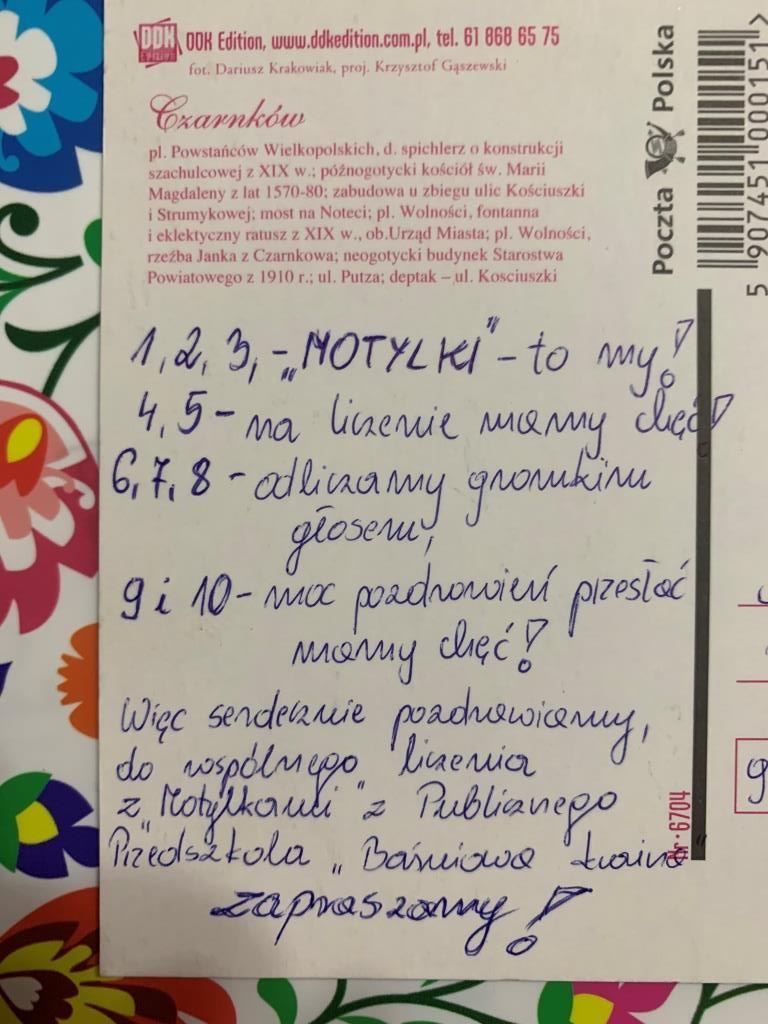 DDK Edition, www.ddkedition.com.pl, tel. 61 868 65 75
fot. Dariusz Krakowiak, proj. Krzysztof Gąszewski
Czarnków
pl. Powstańców Wielkopolskich, d. spichlerz o konstrukcji
szachulcowej z XIX w.; późnogotycki kościół św. Marii
Magdaleny z lat 1570-80; zabudowa u zbiegu ulic Kościuszki
i Strumykowej; most na Noteci; pl. Wolności, fontanna
i eklektyczny ratusz z XIX w., ob.Urząd Miasta; pl. Wolności,
rzeźba Janka z Czarnkowa; neogotycki budynek Starostwa
Powiatowego z 1910 r.; ul. Putza; deptak – ul. Kosciuszki
Poczta Polska
5 907451 000151 >
1, 2, 3, - „MOTYLKI" - to my!
4, 5 - na liczenie mamy chęć!
6, 7, 8 - odliczamy gromkim
głosem,
9 i 10 - moc pozdrowień przesłać
mamy chęć!
Więc serdecznie pozdrawiamy,
do wspólnego liczenia
z „Motylkami" z Publicznego
Przedszkola „Baśniowa kraina"
zapraszamy!
Nr 6704